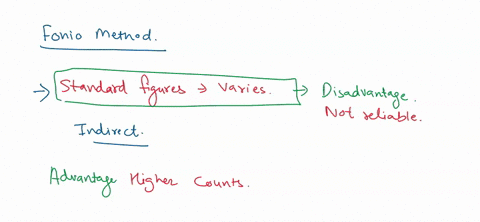 Fonio Method.
Standard figures → Varies. → Disadvantage.
Not reliable.
Indirect.
Advantage Higher Counts.